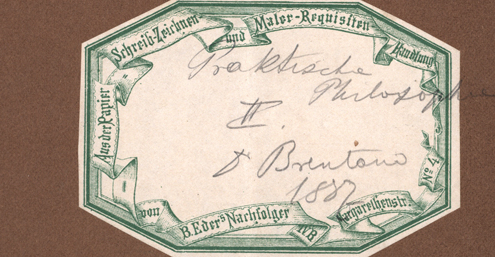 Aus der Papier =
Schreib-Zeichnen
und
Maler-Requisiten
Handlung
von
B. Eder's Nachfolger
WB
Margarethenstr.
No 4.
Praktische
Philosophie
II.
Dr Brentano
1887